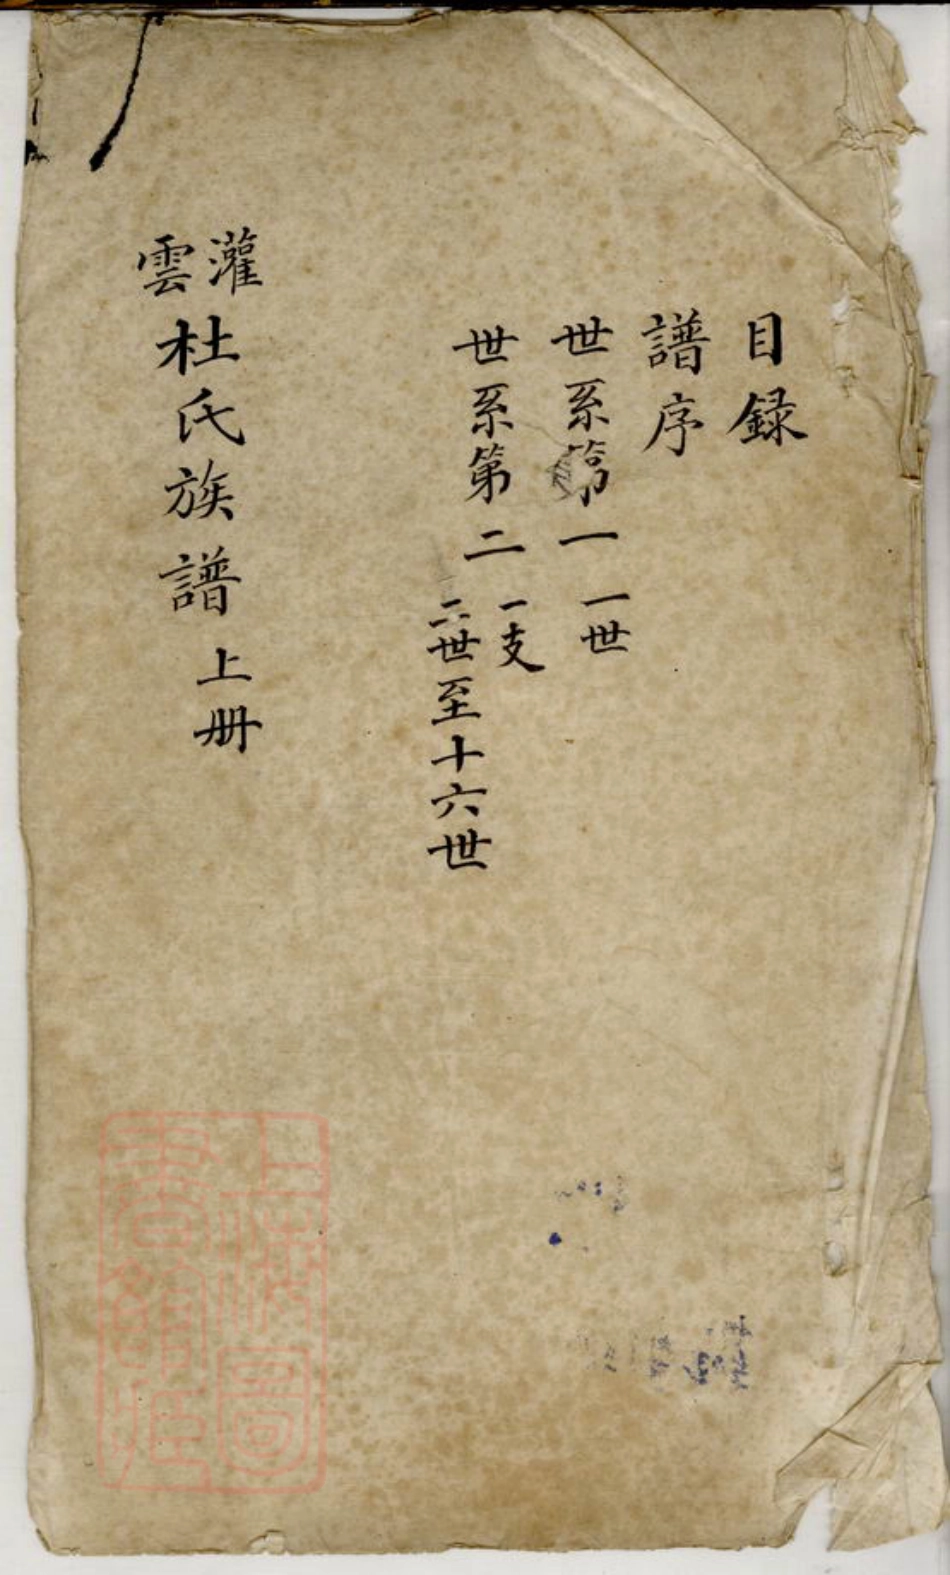 目録
譜序
世系第一 一世
世系第二 一支 二世至十六世
灌雲杜氏族譜 上册
上海圖
書館藏